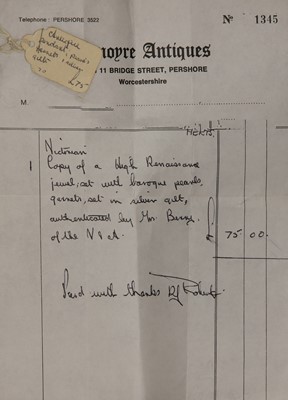 Telephone : PERSHORE 3522
Nº 1345
pendant
pearls
garnets
silver
gilt
£75
noyre Antiques
11 BRIDGE STREET, PERSHORE
Worcestershire
M
Victorian
1 Copy of a High Renaissance
jewel, set with baroque pearls,
garnets, set in silver gilt,
authenticated by Mr
of the V & A. £ 75 00.
Paid with thanks